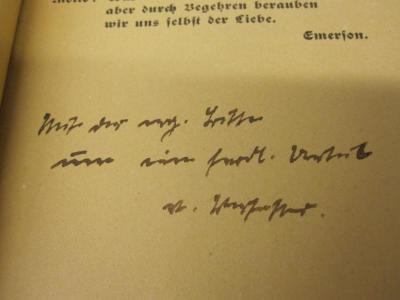 aber durch Begehren berauben
wir uns selbst der Liebe.
Emerson.
Mit der erg. Bitte
um ein frdl. Urteil
v. Verfasser.